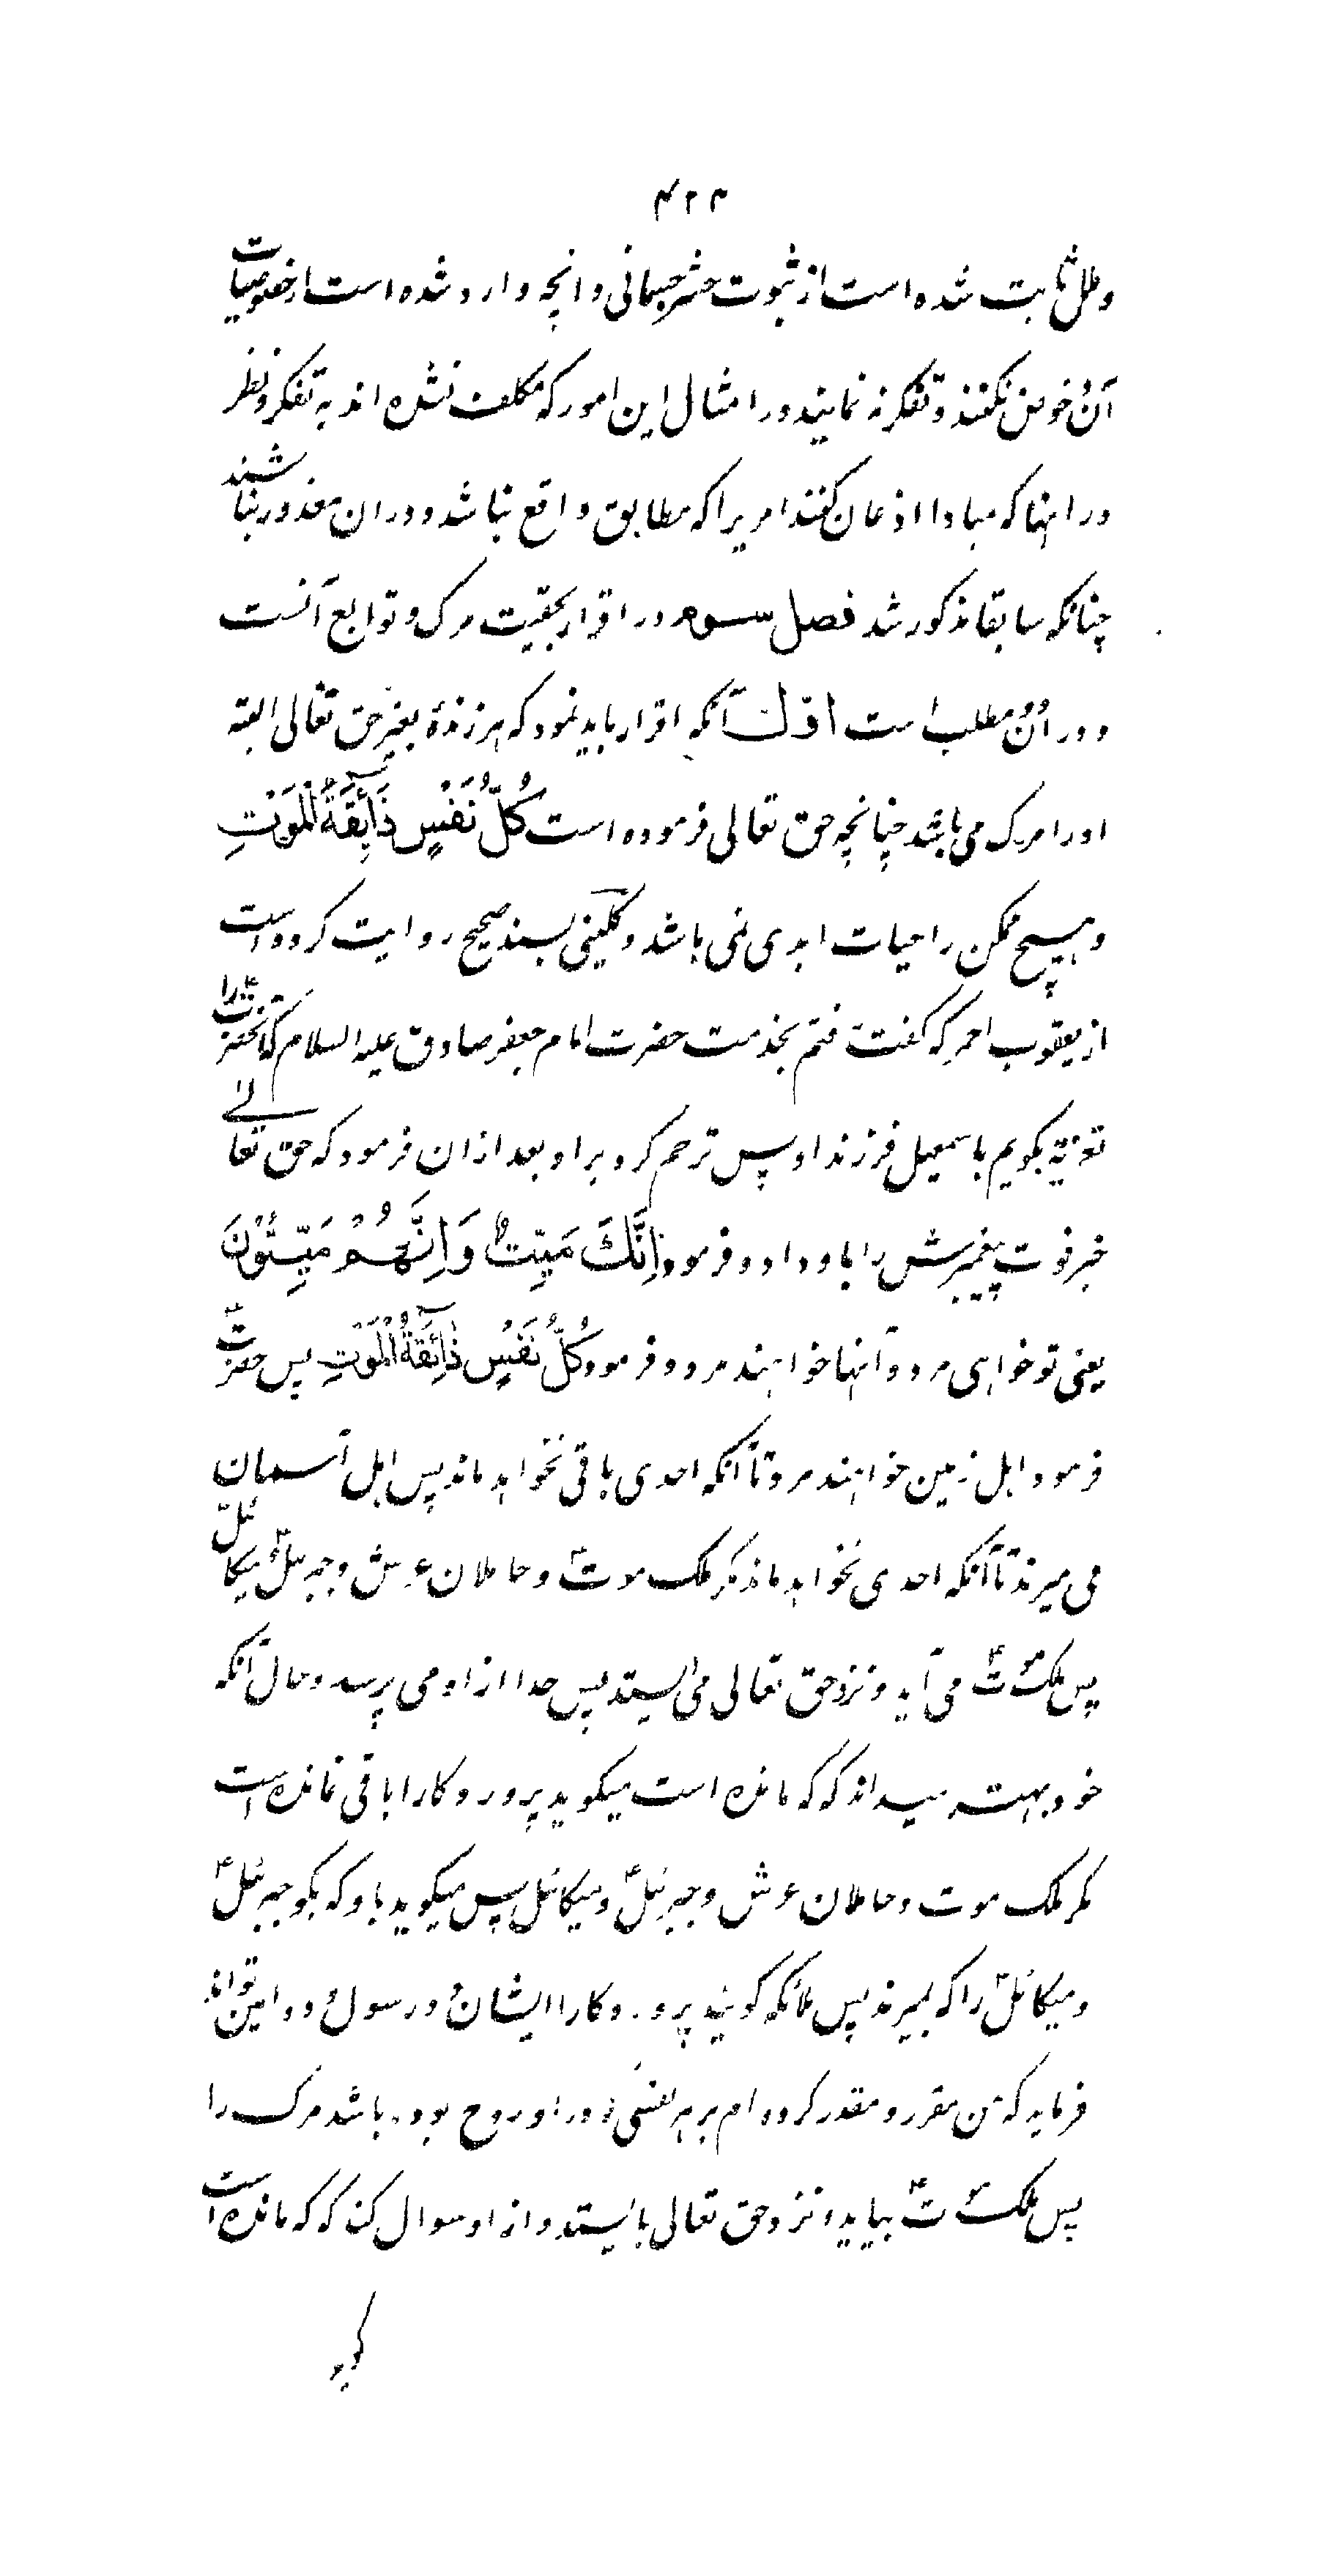 ۴۲۳
وظل ثابت شده است از ثبوت حشر جسمانی و انچه وارد شده است از خصوصیات
آن خوض نکنند و تفکر نه نمایند در امثال این امور که مکلف نشده اند به تفکر و نظر
در انها که مبادا اذعان کنند امریرا که مطابق واقع نباشد و دران معذور نباشند
چنانکه سابقا مذکور شد فصل سوم در اقرار بحقیت مرک و توابع آنست
و در آن مطلب است اوّل آنکه اقرار باید نمود که هر زندهٔ بغیر حق تعالی البته
اورا مرک می باشد چنانچه حق تعالی فرموده است كُلُّ نَفْسٍ ذَآئِقَةُ الْمَوْتِ
و هیچ ممکن را حیات ابدی نمی باشد و کلینی بسند صحیح روایت کرده است
از یعقوب احمر که گفت رفتم بخدمت حضرت امام جعفر صادق علیه السلام که آنحضرت را
تعزیه بگویم باسمعیل فرزند او پس ترحم کرد بر او و بعد ازان فرمود که حق تعالے
خبر فوت پیغمبرش را باو داد و فرمود اِنَّكَ مَيِّتٌ وَاِنَّهُمْ مَيِّتُوْنَ
یعنی تو خواهی مرد و آنها خواهند مرد و فرمود كُلُّ نَفْسٍ ذَآئِقَةُ الْمَوْتِ پس حضرتؑ
فرمود اهل زمین خواهند مرد تا آنکه احدی باقی نخواهد ماند پس اهل آسمان
می میرند تا آنکه احدی نخواهد ماند مکر ملک موتؑ و حاملان عرش و جبرئیلؑ میکائیلؑ
پس ملک موتؑ می آید و نزد حق تعالی می ایستد پس خدا از او می پرسد و حال آنکه
خود بهتر میداند که که مانده است میکوید پروردکارا باقی نمانده است
مکر ملک موت و حاملان عرش و جبرئیلؑ و میکائیل پس میکوید باو که بکو جبرئیلؑ
و میکائیلؑ را که بمیرند پس ملائکه کویند پروردکارا ایشان و رسول و دو امین تواند
فرماید که من مقرر و مقدر کرده ام بر هر نفسی که در او روح بوده باشد مرک را
پس ملک موتؑ بیاید و نزد حق تعالی بایستد و از او سوال کند که که مانده است
کوید